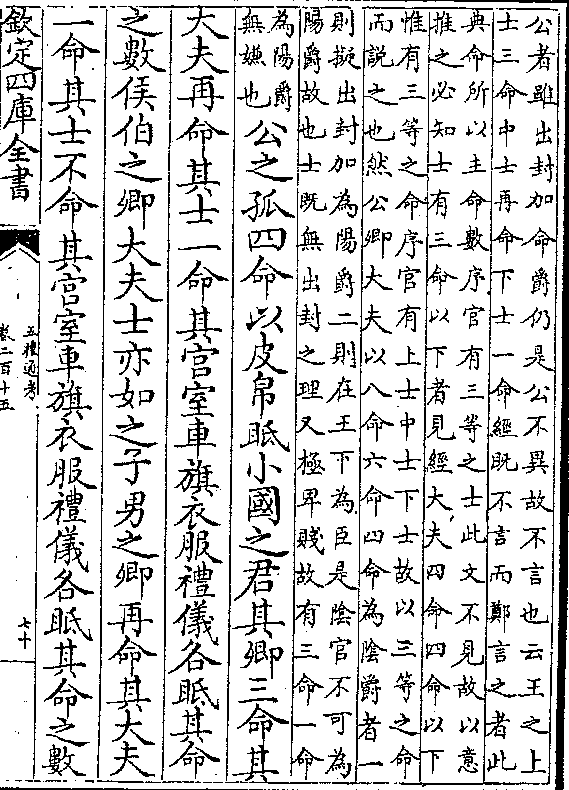 公者雖出封加命爵仍是公不異故不言也云王之上
士三命中士再命下士一命經既不言而鄭言之者此
典命所以主命數序官有三等之士此文不見故以意
推之必知士有三命以下者見經大夫四命四命以下
惟有三等之命序官有上士中士下士故以三等之命
而說之也然公卿大夫以八命六命四命為陰爵者一
則擬出封加為陽爵二則在王下為臣是陰官不可為
陽爵故也士既無出封之理又極卑賤故有三命一命
為陽爵
無嫌也
公之孤四命以皮帛眡小國之君其卿三命其
大夫再命其士一命其宫室車旗衣服禮儀各眡其命
之數侯伯之卿大夫士亦如之子男之卿再命其大夫
一命其士不命其宫室車旗衣服禮儀各眡其命之數
欽定四庫全書
五禮通考
卷二百十五
七十